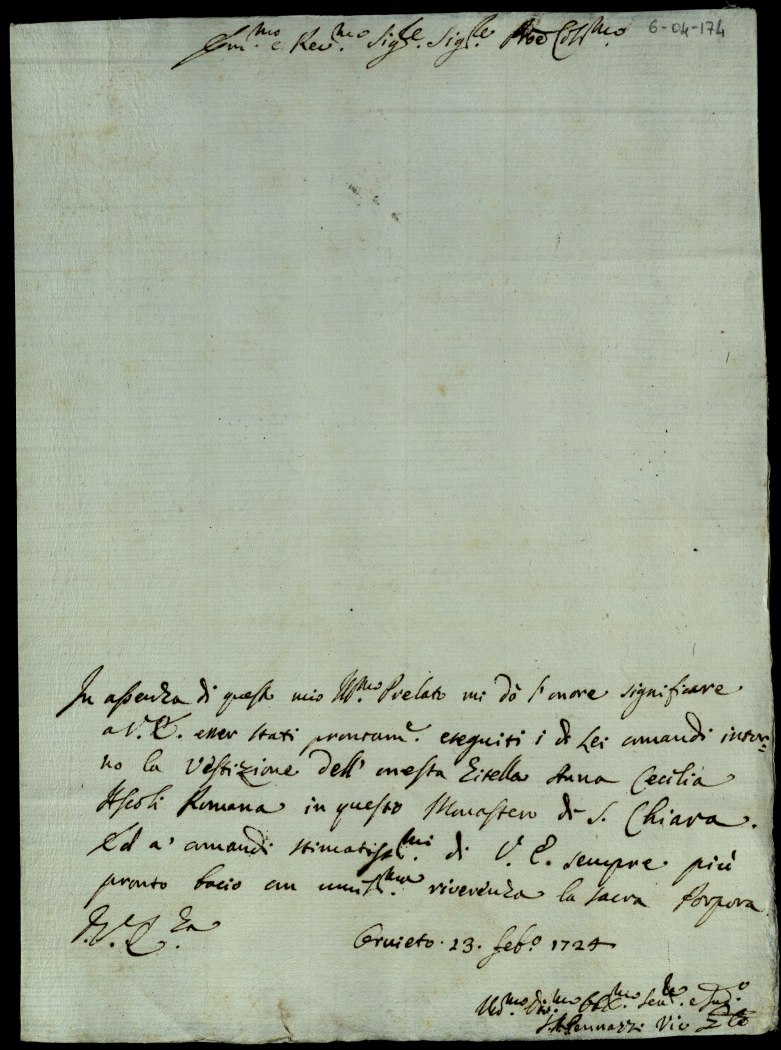 Em.mo e Rev.mo Sig.re Sig.re Pròe Col.mo
6-04-174
In assenza di questo mio Ill.mo Prelato mi dò l'onore significare
a V. E. esser stati prontam.e eseguiti i di Lei comandi intor=
no la Vestizione dell' onesta Zitella Anna Cecilia
Ascoli Romana in questo Monastero di S. Chiara.
Ed a' comandi stimatiss.mi di V. E. sempre più
pronto bacio con umiliss.ma riverenza la sacra Porpora
Orvieto. 23. Feb.o 1724
Um.mo Div.mo Obl.mo Ser.re
Pennazzi Vic